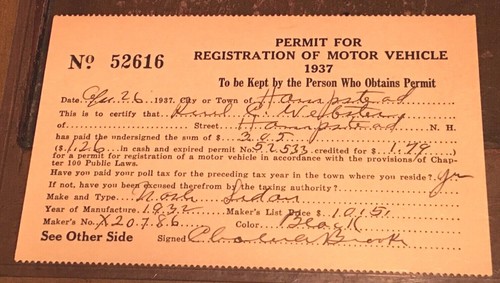 No 52616
PERMIT FOR
REGISTRATION OF MOTOR VEHICLE
1937
To be Kept by the Person Who Obtains Permit
Date 26 1937. City or Town of Hampstead
This is to certify that
of Street, Hampstead N. H.
has paid the undersigned the sum of $ 3.05
($1.26 in cash and expired permit No. 52533 credited for $ 1.79)
for a permit for registration of a motor vehicle in accordance with the provisions of Chap-
ter 100 Public Laws.
Have you paid your poll tax for the preceding tax year in the town where you reside?
If not, have you been excused therefrom by the taxing authority?
Make and Type, Nash Sedan
Year of Manufacture, 1932 Maker's List Price $ 1015
Maker's No. X20786 Color Black
See Other Side Signed